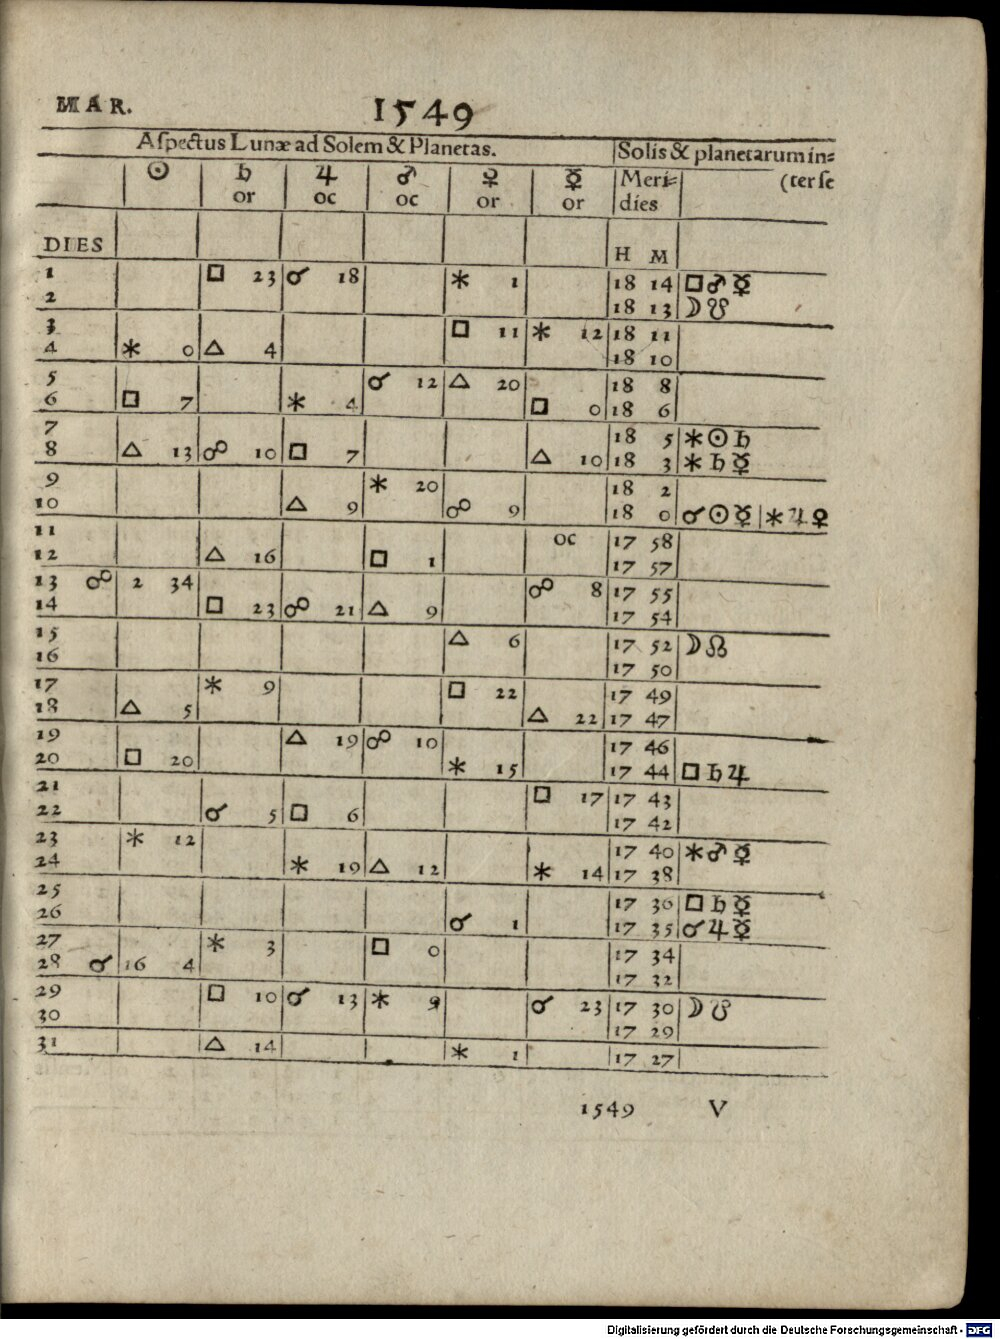 MAR. 1549
Aſpectus Lunæ ad Solem & Planetas. Solis & planetarum in=
☉ ♄ ♃ ♂ ♀ ☿ Meri= (ter ſe
or oc oc or or dies
DIES H M
1 □ 23 ☌ 18 ⚹ 1 18 14 □ ♂ ☿
2 18 13 ☽ ☋
3 □ 11 ⚹ 12 18 11
4 ⚹ 0 △ 4 18 10
5 ☌ 12 △ 20 18 8
6 □ 7 ⚹ 4 □ 0 18 6
7 18 5 ⚹ ☉ ♄
8 △ 13 ☍ 10 □ 7 △ 10 18 3 ⚹ ♄ ☿
9 ⚹ 20 18 2
10 △ 9 ☍ 9 18 0 ☌ ☉ ☿ | ⚹ ♃ ♀
11 oc 17 58
12 △ 16 □ 1 17 57
13 ☍ 2 34 ☍ 8 17 55
14 □ 23 ☍ 21 △ 9 17 54
15 △ 6 17 52 ☽ ☊
16 17 50
17 ⚹ 9 □ 22 17 49
18 △ 5 △ 22 17 47
19 △ 19 ☍ 10 17 46
20 □ 20 ⚹ 15 17 44 □ ♄ ♃
21 □ 17 17 43
22 ☌ 5 □ 6 17 42
23 ⚹ 12 17 40 ⚹ ♂ ☿
24 ⚹ 19 △ 12 ⚹ 14 17 38
25 17 36 □ ♄ ☿
26 ☌ 1 17 35 ☌ ♃ ☿
27 ⚹ 3 □ 0 17 34
28 ☌ 16 4 17 32
29 □ 10 ☌ 13 ⚹ 9 ☌ 23 17 30 ☽ ☋
30 17 29
31 △ 14 ⚹ 1 17 27
1549 V
Digitalisierung gefördert durch die Deutsche Forschungsgemeinschaft - DFG